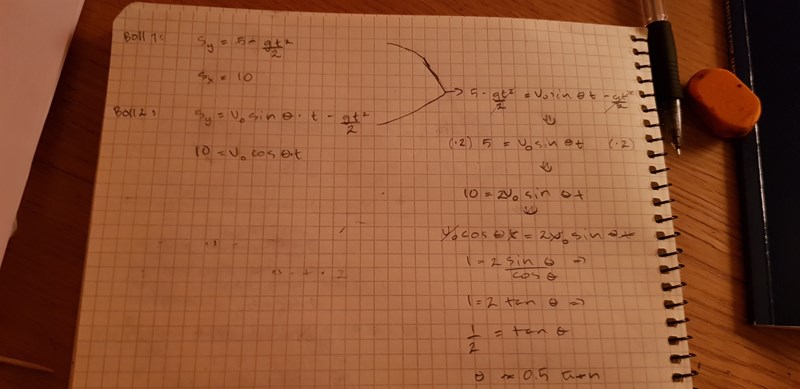 Boll 1: Sy = 5 - gt²/2
Sx = 10
Boll 2: Sy = V₀ sin θ · t - gt²/2
10 = V₀ cos θ · t
5 - gt²/2 = V₀ sin θ t - gt²/2
⇓
(·2) 5 = V₀ sin θ t (·2)
⇓
10 = 2V₀ sin θ t
⇓
V₀ cos θ t = 2V₀ sin θ t
1 = 2 sin θ / cos θ ⇒
1 = 2 tan θ ⇒
1/2 = tan θ
θ ≈ 0.5